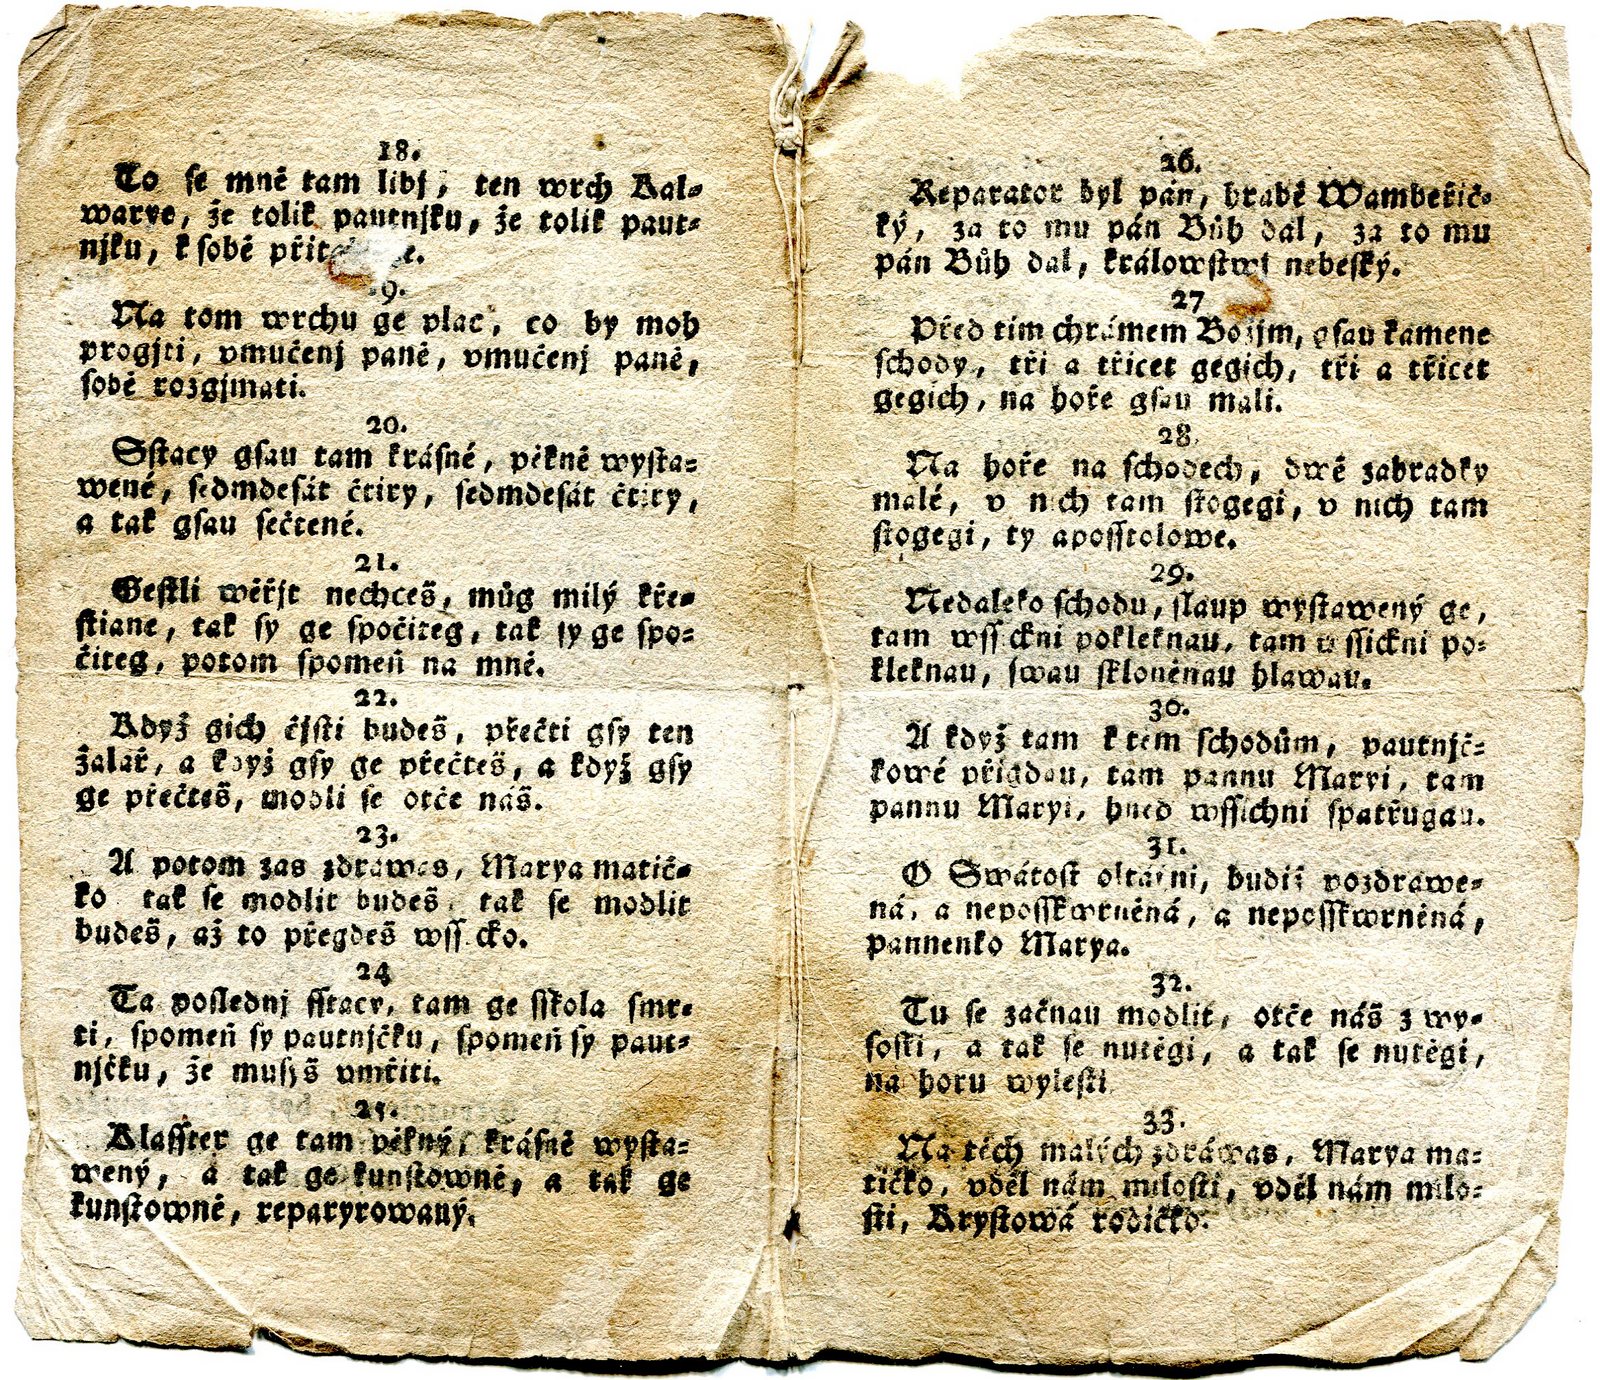 18.
To ſe mně tam libj, ten wrch Kal⸗
warye, že tolik pautnjku, že tolik paut⸗
njku, k ſobě
9.
Na tom wrchu ge plac, co by moh
progjti, vmučenj paně, vmučenj paně,
ſobě rozgjmati.
20.
Sſtacy gſau tam kráſné, pěkně wyſta⸗
wené, ſedmdeſát čtiry, ſedmdeſát čtiry,
a tak gſau ſečtené.
21.
Geſtli wěřjt nechceš, můg milý kře⸗
ſtiane, tak ſy ge ſpočiteg, tak ſy ge ſpo⸗
čiteg, potom ſpomeň na mně.
22.
Když gich čjſti budeš, přečti gſy ten
žalář, a když gſy ge přečteš, a když gſy
ge přečteš, modli ſe otče náš.
23.
A potom zas zdrawas, Marya matič⸗
ko tak ſe modlit budeš, tak ſe modlit
budeš, až to přegdeš wſſicko.
24
Ta poſlednj ſſtacy, tam ge ſſkola ſmr⸗
ti, ſpomeň ſy pautnjčku, ſpomeň ſy paut⸗
njčku, že muſyš vmřiti.
25.
Klaſſter ge tam pěkný, kráſně wyſta⸗
wený, a tak ge kunſtowně, a tak ge
kunſtowně, reparyrowaný.
26.
Reparator byl pán, hrabě Wambeřič⸗
ký, za to mu pán Bůh dal, za to mu
pán Bůh dal, králowſtwi nebeſký.
27
Před tim chrámem Božjm, gſau kamene
ſchody, tři a třicet gegich, tři a třicet
gegich, na hoře gſau mali.
28.
Na hoře na ſchodech, dwě zahradky
malé, v nich tam ſtogegi, v nich tam
ſtogegi, ty apoſſtolowe.
29.
Nedaleko ſchodu, ſlaup wyſtawený ge,
tam wſſickni pokleknau, tam wſſickni po⸗
kleknau, ſwau ſkloněnau hlawau.
30.
A když tam k tem ſchodům, pautnjč⸗
kowé přigdau, tam pannu Maryi, tam
pannu Maryi, hned wſſichni ſpatřugau.
31.
O Swátoſt oltářni, budiž pozdrawe⸗
ná, a nepoſſkwrněná, a nepoſſkwrněná,
pannenko Marya.
32.
Tu ſe začnau modlit, otče náš z wy⸗
ſoſti, a tak ſe nutěgi, a tak ſe nutěgi,
na horu wyleſti
33.
Na těch malých zdráwas, Marya ma⸗
tičko, vděl nám miloſti, vděl nám milo⸗
ſti, Kryſtowá rodičko.